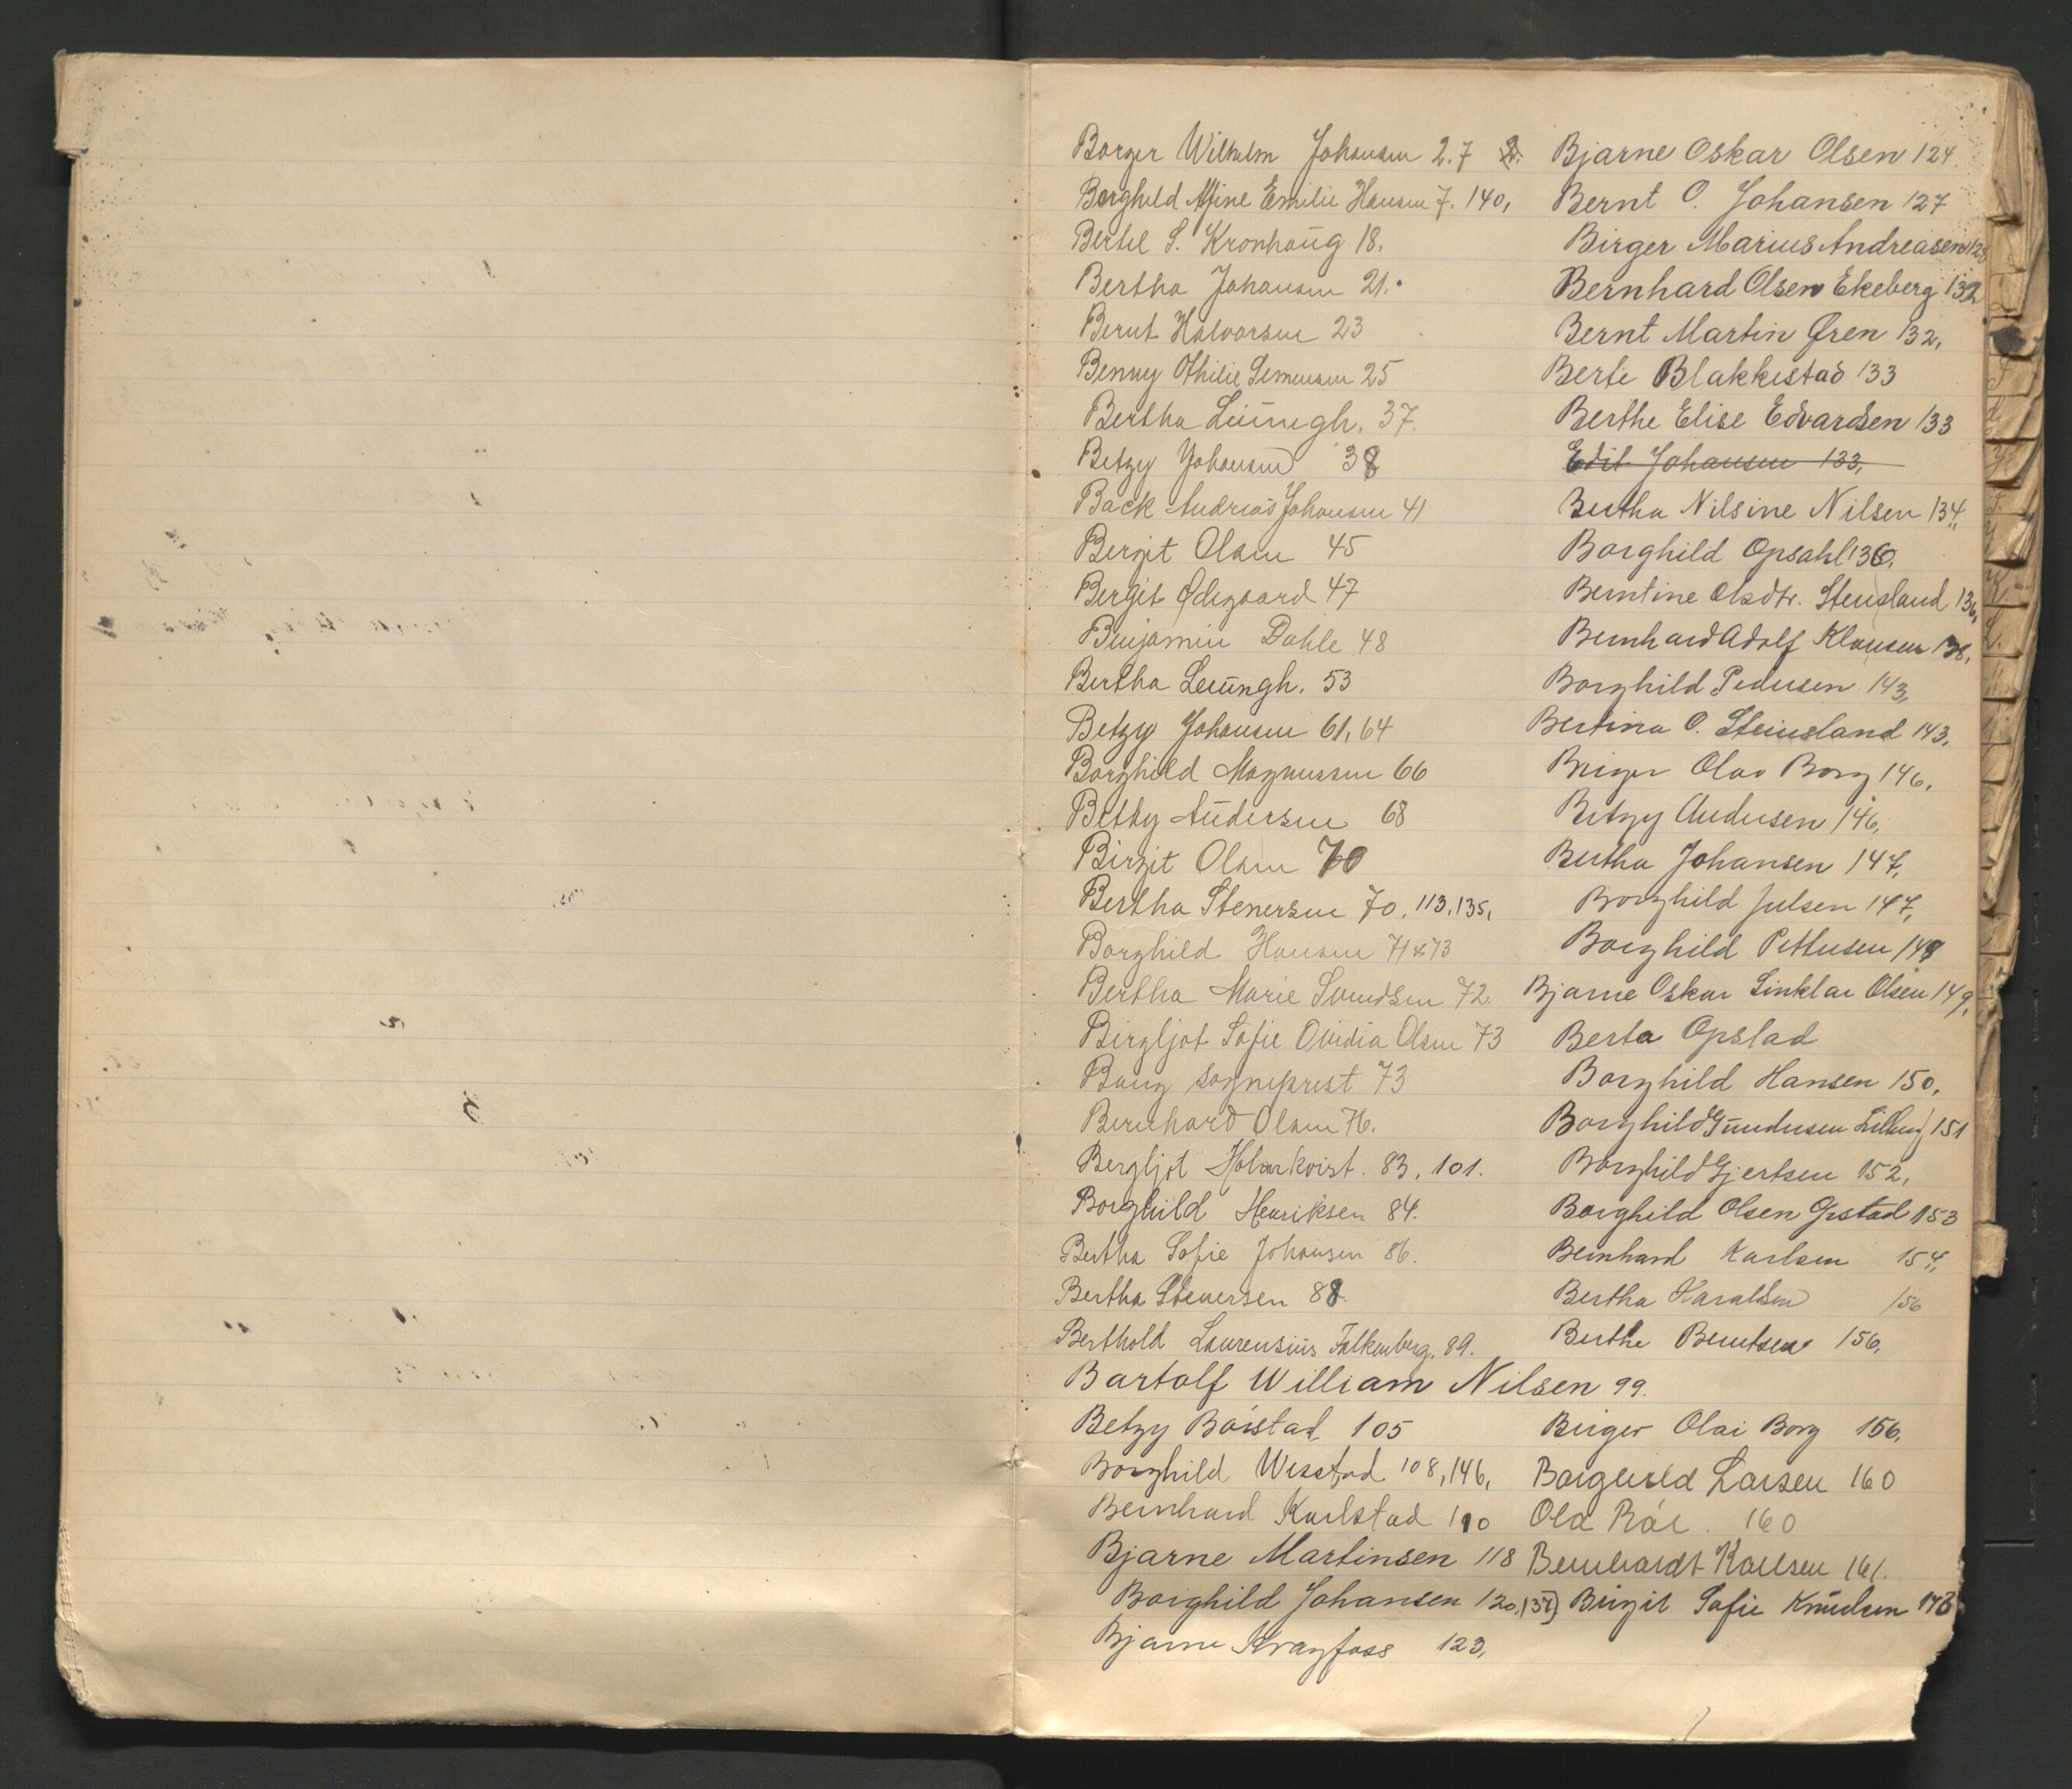 Borger Wilhelm Johansen 2.7
Borghild Mine Emilie Hansen 7. 140,
Bertel S. Kronhaug 18.
Bertha Johansen 21.
Bernt Halvorsen 23
Benny Othilie Semensen 25
Bertha Leüüngh. 37.
Betzy Johansen 38
Back Andreas Johansen 41
Bergit Olsen 45
Bergit Ødegaard 47
Benjamin Dahle 48
Bertha Leüüngh. 53
Betzy Johansen 61, 64
Borghild Magnussen 66
Betty Andersen 68
Birgit Olsen 70
Bertha Stenersen 70, 113, 135,
Borghild Hansen 71 & 73
Bertha Marie Svendsen 72.
Bergljot Sofie Ovidia Olsen 73
Bang sogneprest 73
Bernhard Olsen 76.
Bergljot Holmkvist. 83, 101.
Borghild Henriksen 84.
Bertha Sofie Johansen 86.
Bertha Stenersen 88.
Berthold Laurensius Falkenberg. 89.
Bartolf William Nilsen 99.
Betzy Boistad 105
Borghild Wesstad 108, 146,
Bernhard Karlstad 110
Bjarne Martinsen 118
Borghild Johansen 120, 137)
Bjarne Kragfoss 123,
Bjarne Oskar Olsen 124
Bernt O. Johansen 127
Birger Marius Andreasen 128
Bernhard Olsen Ekeberg 132
Bernt Martin Øren 132,
Berte Blakkestad 133
Berthe Elise Edvardsen 133
Edit Johansen 133,
Bertha Nilsine Nilsen 134,
Borghild Opsahl 136,
Berntine Olsdtr. Stensland 136,
Bernhard Adolf Klausen 138,
Borghild Pedersen 143,
Bertina O. Steinsland 143,
Birger Olav Borg 146,
Betzy Andersen 146,
Bertha Johansen 147,
Borghild Julsen 147,
Borghild Pettersen 148
Bjarne Oskar Sinklar Olsen 149,
Berta Opstad
Borghild Hansen 150,
Borghild Gundersen 151
Borghild Gjertsen 152,
Borghild Olsen Grstad 153
Bernhard Karlsen 154,
Bertha Haraldsen 156
Berthe Berntsen 156,
Birger Olai Borg 156,
Borghild Larsen 160
Ola Rår. 160
Bernhardt Karlsen 161.
Birgit Sofie Knudsen 173